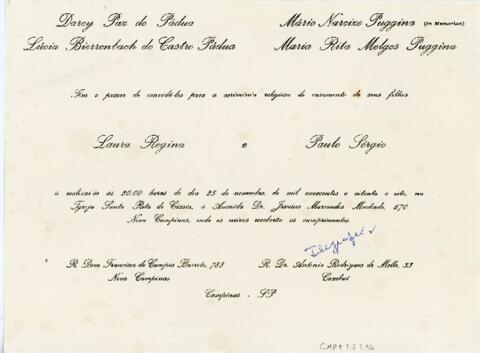 Darcy Paz de Pádua
Lúcia Bierrenbach de Castro Pádua
Mário Narcizo Puggina (In Memorian)
Maria Rita Melges Puggina
Têm o prazer de convidá-los para a cerimônia religiosa de casamento de seus filhos
Laura Regina e Paulo Sérgio
à realizar-se às 20:00 horas do dia 25 de novembro, de mil novecentos e oitenta e oito, na
Igreja Santa Rita de Cássia, à Avenida Dr. Jesuino Marcondes Machado, 670
Nova Campinas, onde os noivos receberão os cumprimentos.
R. Dom Francisco de Campos Barreto, 733
Nova Campinas
R. Dr. Antonio Rodrigues de Mello, 33
Cambuí
Campinas - SP